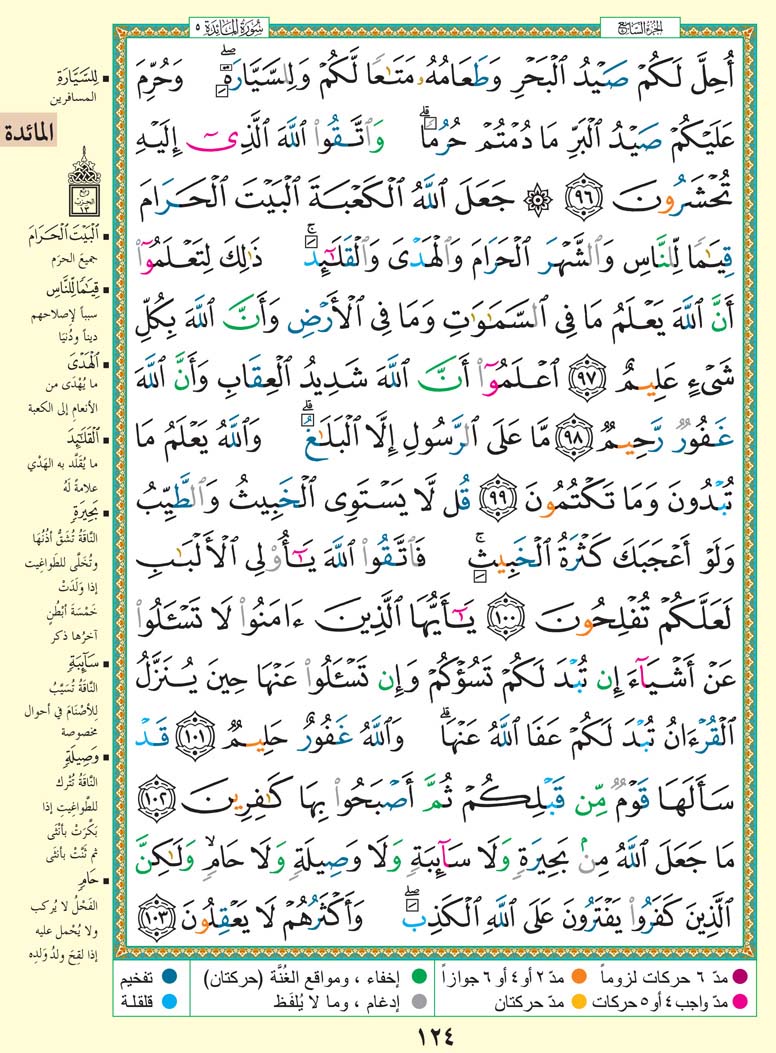 الجزء السابع
سورة المائدة ٥
أُحِلَّ لَكُمْ صَيْدُ ٱلْبَحْرِ وَطَعَامُهُۥ مَتَٰعًا لَّكُمْ وَلِلسَّيَّارَةِ ۖ وَحُرِّمَ
عَلَيْكُمْ صَيْدُ ٱلْبَرِّ مَا دُمْتُمْ حُرُمًا ۗ وَٱتَّقُوا۟ ٱللَّهَ ٱلَّذِىٓ إِلَيْهِ
تُحْشَرُونَ ٩٦ ۞ جَعَلَ ٱللَّهُ ٱلْكَعْبَةَ ٱلْبَيْتَ ٱلْحَرَامَ
قِيَٰمًا لِّلنَّاسِ وَٱلشَّهْرَ ٱلْحَرَامَ وَٱلْهَدْىَ وَٱلْقَلَٰٓئِدَ ۚ ذَٰلِكَ لِتَعْلَمُوٓا۟
أَنَّ ٱللَّهَ يَعْلَمُ مَا فِى ٱلسَّمَٰوَٰتِ وَمَا فِى ٱلْأَرْضِ وَأَنَّ ٱللَّهَ بِكُلِّ
شَىْءٍ عَلِيمٌ ٩٧ ٱعْلَمُوٓا۟ أَنَّ ٱللَّهَ شَدِيدُ ٱلْعِقَابِ وَأَنَّ ٱللَّهَ
غَفُورٌ رَّحِيمٌ ٩٨ مَّا عَلَى ٱلرَّسُولِ إِلَّا ٱلْبَلَٰغُ ۗ وَٱللَّهُ يَعْلَمُ مَا
تُبْدُونَ وَمَا تَكْتُمُونَ ٩٩ قُل لَّا يَسْتَوِى ٱلْخَبِيثُ وَٱلطَّيِّبُ
وَلَوْ أَعْجَبَكَ كَثْرَةُ ٱلْخَبِيثِ ۚ فَٱتَّقُوا۟ ٱللَّهَ يَٰٓأُو۟لِى ٱلْأَلْبَٰبِ
لَعَلَّكُمْ تُفْلِحُونَ ١٠٠ يَٰٓأَيُّهَا ٱلَّذِينَ ءَامَنُوا۟ لَا تَسْـَٔلُوا۟
عَنْ أَشْيَآءَ إِن تُبْدَ لَكُمْ تَسُؤْكُمْ وَإِن تَسْـَٔلُوا۟ عَنْهَا حِينَ يُنَزَّلُ
ٱلْقُرْءَانُ تُبْدَ لَكُمْ عَفَا ٱللَّهُ عَنْهَا ۗ وَٱللَّهُ غَفُورٌ حَلِيمٌ ١٠١ قَدْ
سَأَلَهَا قَوْمٌ مِّن قَبْلِكُمْ ثُمَّ أَصْبَحُوا۟ بِهَا كَٰفِرِينَ ١٠٢
مَا جَعَلَ ٱللَّهُ مِنۢ بَحِيرَةٍ وَلَا سَآئِبَةٍ وَلَا وَصِيلَةٍ وَلَا حَامٍ ۙ وَلَٰكِنَّ
ٱلَّذِينَ كَفَرُوا۟ يَفْتَرُونَ عَلَى ٱللَّهِ ٱلْكَذِبَ ۖ وَأَكْثَرُهُمْ لَا يَعْقِلُونَ ١٠٣
▪ لِلسَّيَّارَةِ
المسافرين
المائدة
ربع
الحزب
١٣
▪ ٱلْبَيْتَ ٱلْحَرَامَ
جميعَ الحرَم
▪ قِيَٰمًا لِّلنَّاسِ
سبباً لإصلاحهم
ديناً ودُنيَا
▪ ٱلْهَدْىَ
ما يُهْدَى من
الأنعام إلى الكعبة
▪ ٱلْقَلَٰٓئِدَ
ما يُقلَّد به الهَدْي
علامةً لَهُ
▪ بَحِيرَةٍ
النَّاقةُ تُشَقُّ أذُنُهَا
وتُخَلَّى للطَّواغيت
إذا وَلَدَتْ
خَمْسَةَ أبْطُنٍ
آخرُها ذكر
▪ سَآئِبَةٍ
النَّاقةُ تُسَيَّبُ
لِلأصْنَام في أحوال
مخصوصة
▪ وَصِيلَةٍ
النَّاقَةُ تُتْرك
للطَّواغيتِ إذا
بَكَّرَتْ بأنْثَى
ثم ثَنَّتْ بأنثى
▪ حَامٍ
الفَحْلُ لا يُركب
ولا يُحْمل عليه
إذا لَقِحَ ولدُ وَلدِه
مدّ ٦ حركات لزوماً
مدّ ٢ أو ٤ أو ٦ جوازاً
إخفاء ، ومواقع الغُنَّة (حركتان)
تفخيم
مدّ واجب ٤ أو ٥ حركات
مدّ حركتان
إدغام ، وما لا يُلفَظ
قلقلة
١٢٤